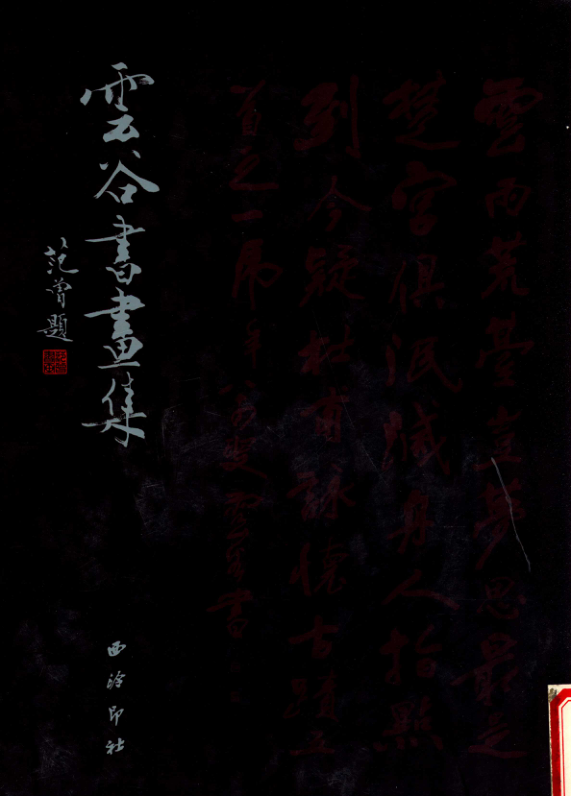 雲谷書畫集
范曾題
西泠印社
雲雨荒臺豈夢思最是
楚宮俱泯滅舟人指點
到今疑杜甫詠懷古蹟五
首之一
書